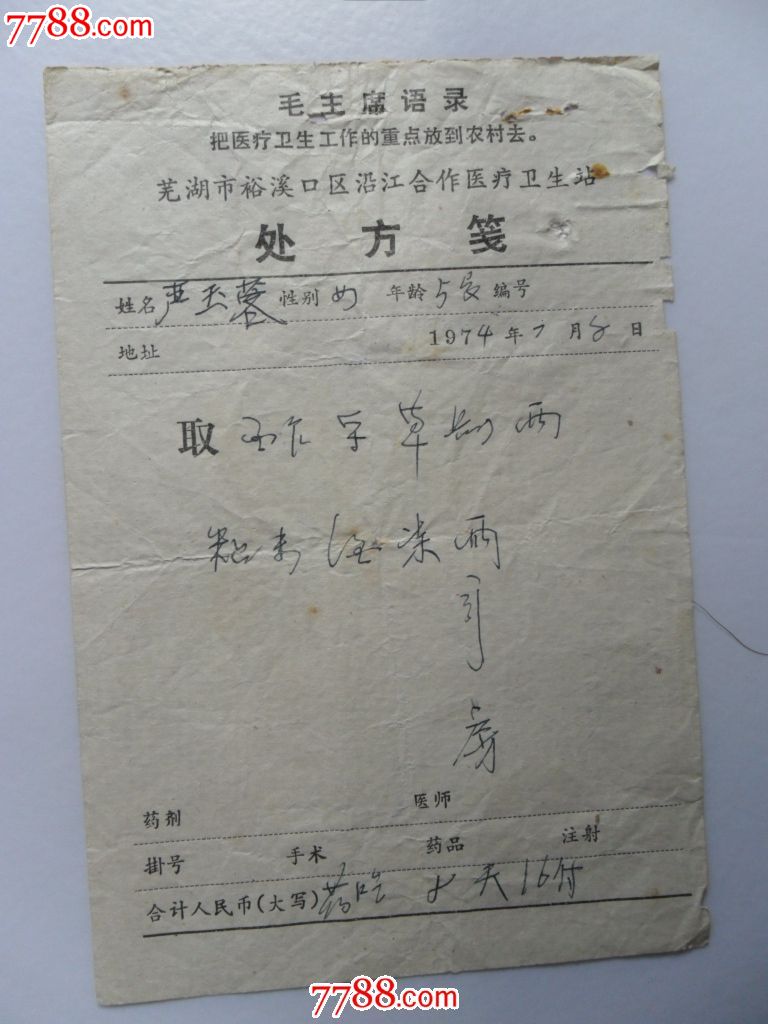 7788.com
7788.com
毛主席语录
把医疗卫生工作的重点放到农村去。
芜湖市裕溪口区沿江合作医疗卫生站
处方笺
姓名 严玉蓉 性别 女 年龄 岁 编号
地址 1974年7月8日
取 草 两
两
药剂 医师
掛号 手术 药品 注射
合计人民币(大写) 药吃 8天16付
7788.com
7788.com